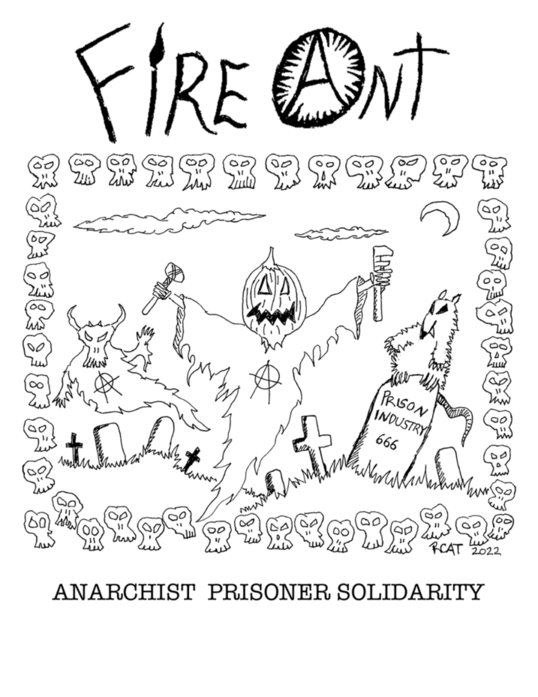 FIRE ANT
PRISON
INDUSTRY
666
RCAT 2022
ANARCHIST PRISONER SOLIDARITY